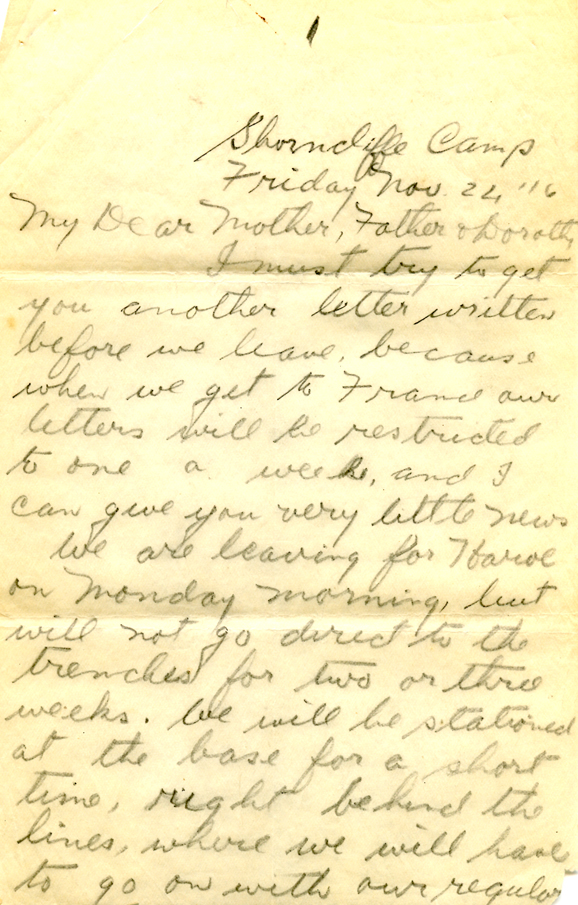 Shorncliffe Camp
Friday Nov. 24 "16
My Dear Mother, Father & Dorothy
I must try to get
you another letter written
before we leave, because
when we get to France our
letters will be restricted
to one a week, and I
can give you very little news
We are leaving for Havre
on Monday morning, but
will not go direct to the
trenches for two or three
weeks. We will be stationed
at the base for a short
time, right behind the
lines, where we will have
to go on with our regular